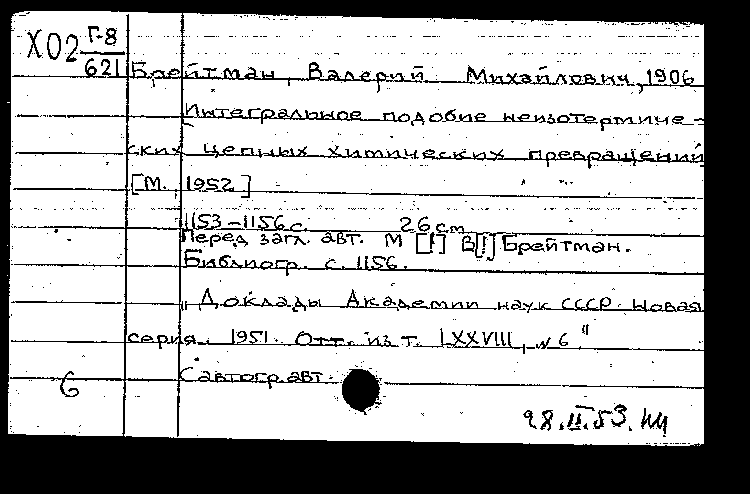 Х02 Г-8
621
Брейтман, Валерий Михайлович, 1906
Интегральное подобие неизотермиче-
ских цепных химических превращений
[М., 1952]
1153-1156 с. 26 см
Перед загл. авт. М [!] В[!] Брейтман.
Библиогр. с. 1156.
"Доклады Академии наук СССР. Новая
серия., 1951. Отт. из т. LXXVIII, № 6"
С автогр. авт.
6
28.II.53.